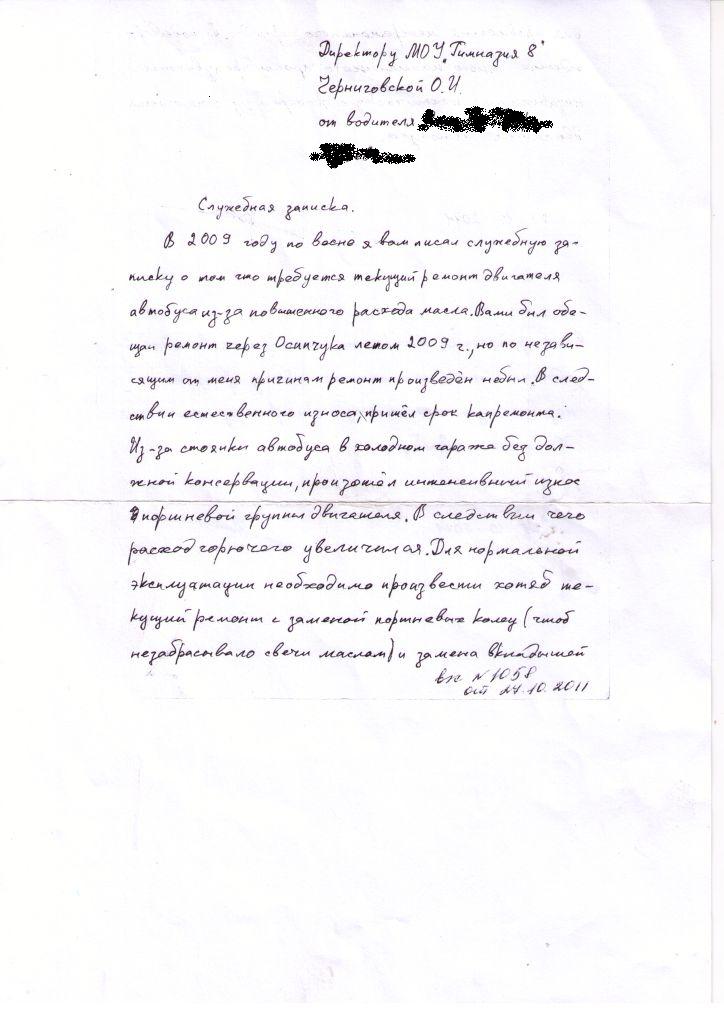 Директору МОУ "Гимназия 8"
Черниговской О.И.
от водителя
Служебная записка.
В 2009 году по весне я вам писал служебную за-
писку о том что требуется текущий ремонт двигателя
автобуса из-за повышенного расхода масла. Вами был обе-
щан ремонт через Осипчука летом 2009 г., но по незави-
сящим от меня причинам ремонт произведён небыл. В след-
ствии естественного износа, пришёл срок капремонта.
Из-за стоянки автобуса в холодном гараже без дол-
жной консервации, произошёл интенсивный износ
поршневой группы двигателя. В следствии чего
расход горючего увеличился. Для нормальной
эксплуатации необходимо произвести хотяб те-
кущий ремонт с заменой поршневых колец (чтоб
незабрасывало свечи маслом) и замена вкладышей
вх N 1058
от 24.10.2011